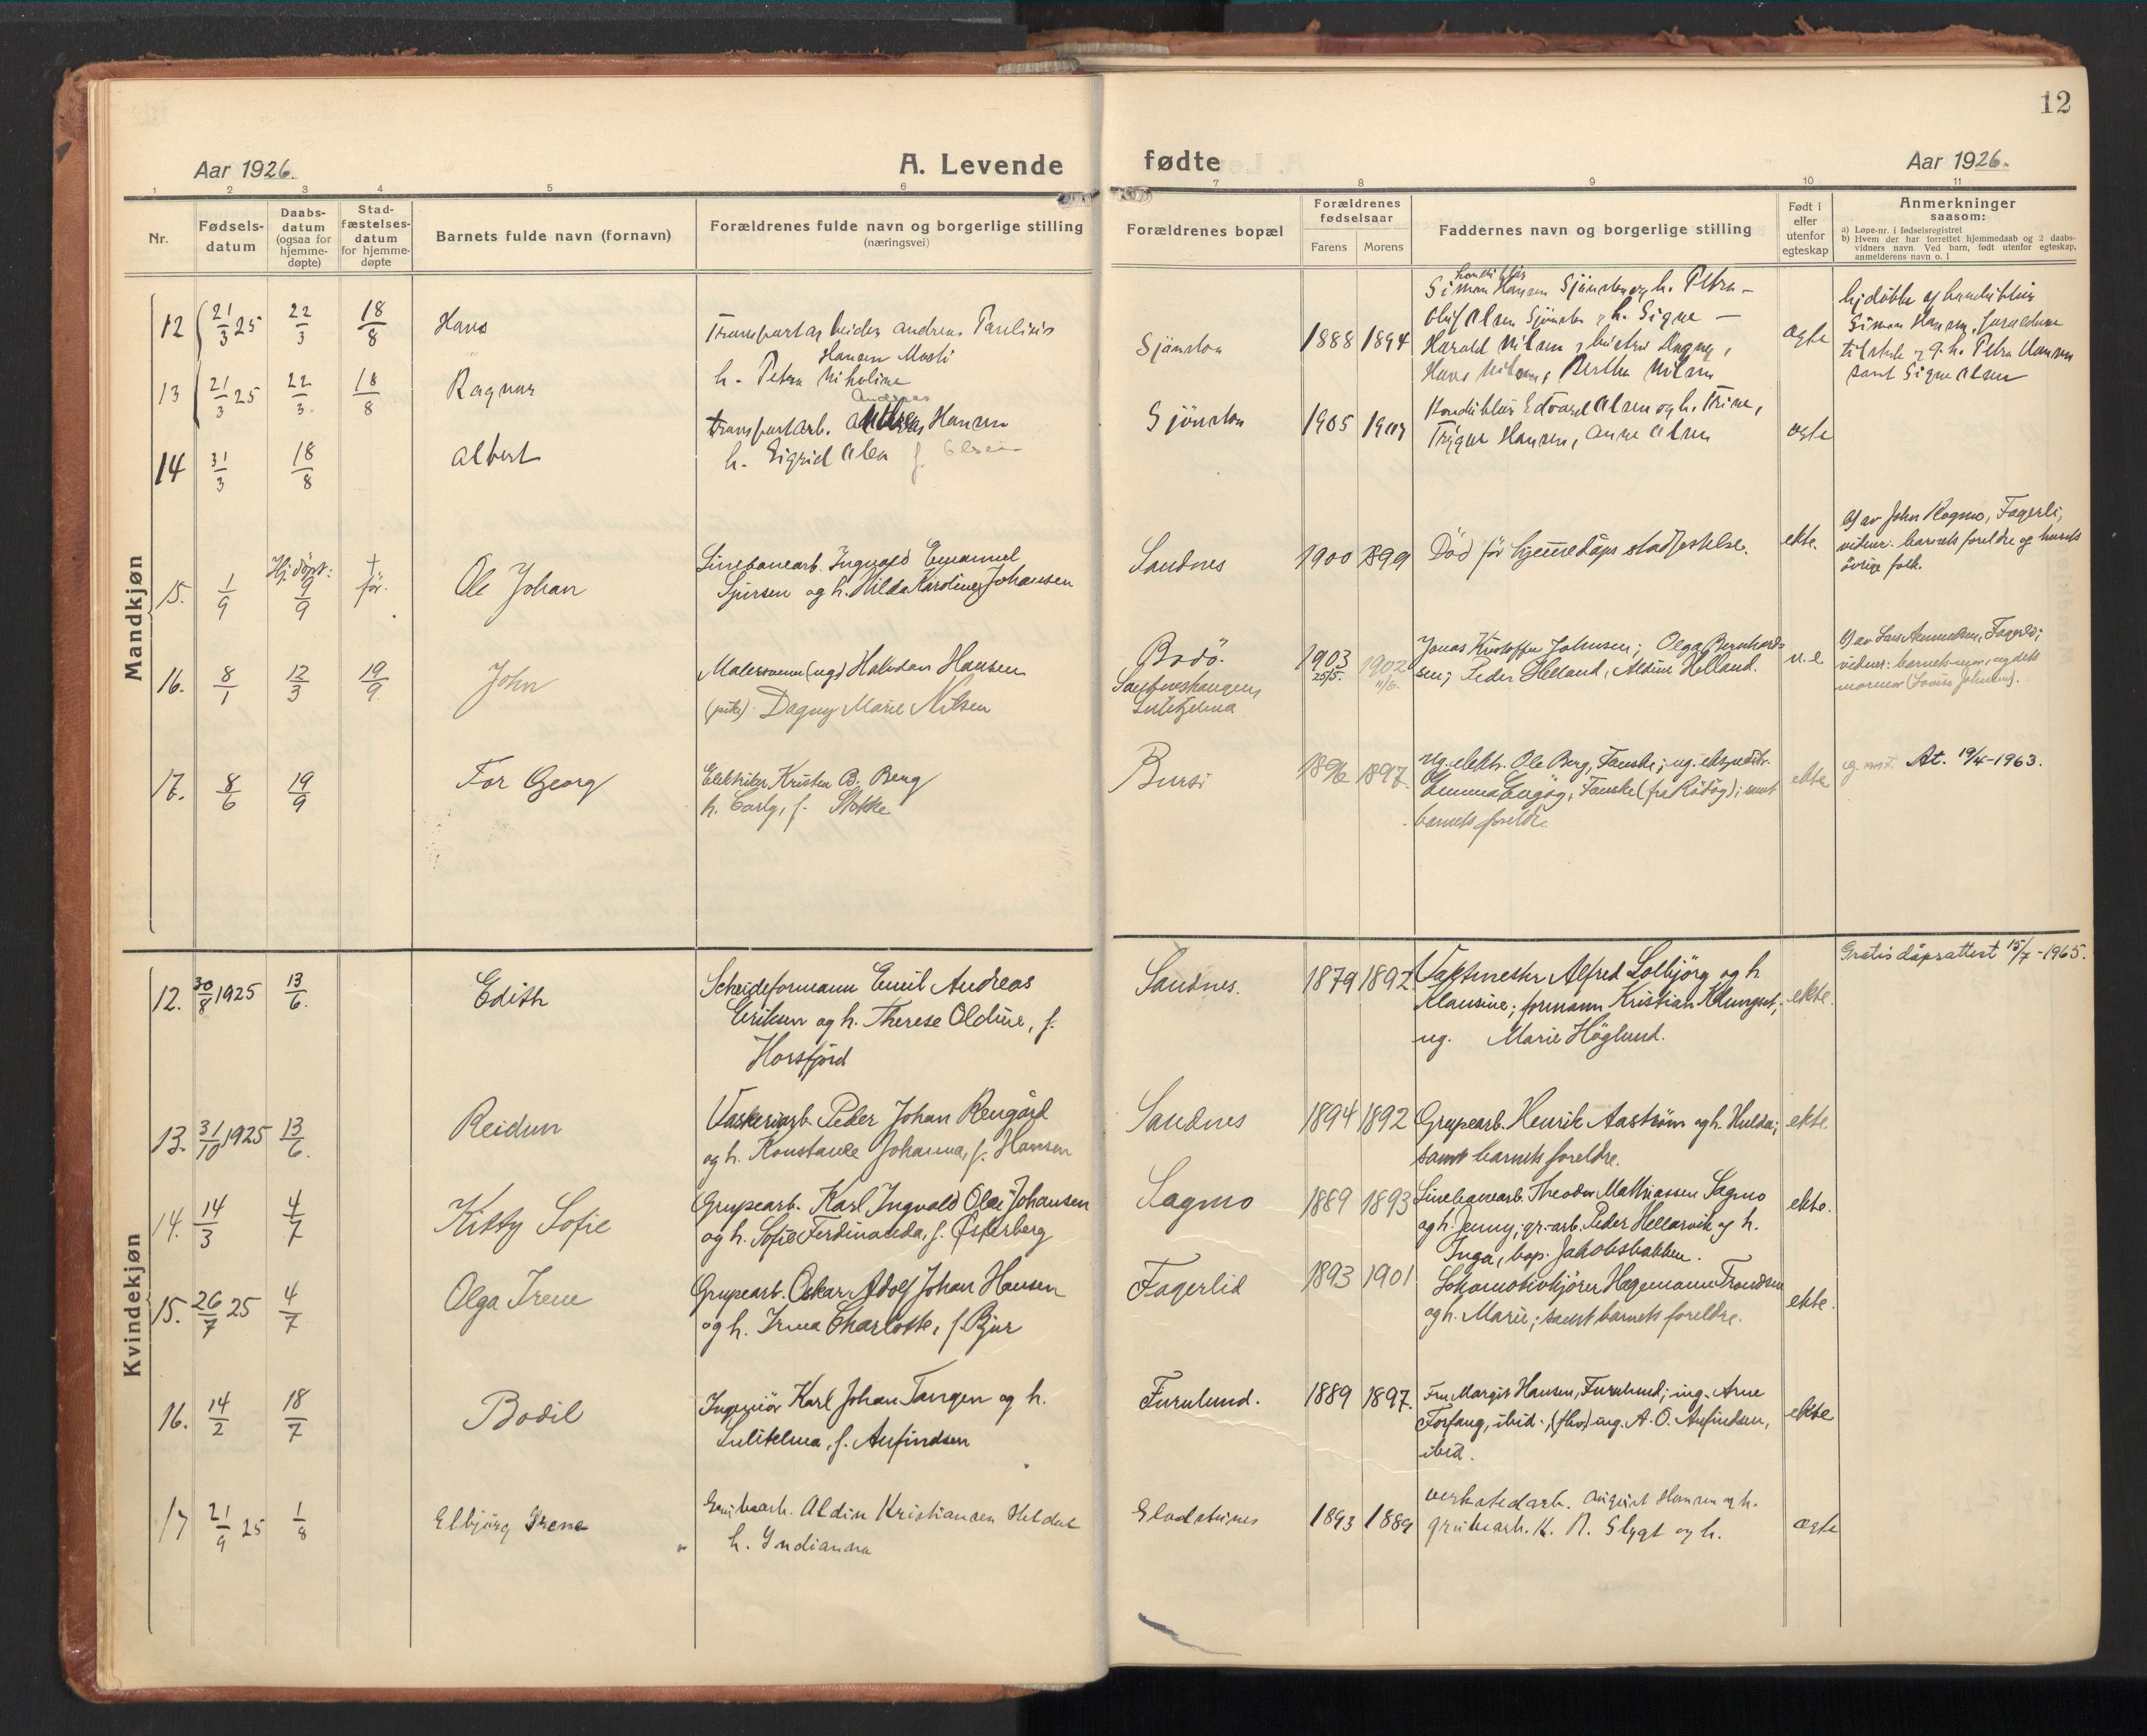 12
Aar 1926.
A. Levende
fødte
Aar 1926.
1 2 3 4 5 6 7 8 9 10 11
Nr.
Fødsels-
datum
Daabs-
datum
(ogsaa for
hjemme-
døpte)
Stad-
fæstelses-
datum
for hjemme-
døpte
Barnets fulde navn (fornavn)
Forældrenes fulde navn og borgerlige stilling
(næringsvei)
Forældrenes bopæl
Forældrenes
fødselsaar
Farens Morens
Faddernes navn og borgerlige stilling
Født i
eller
utenfor
egteskap
Anmerkninger
saasom:
a) Løpe-nr. i fødselsregistret
b) Hvem der har forrettet hjemmedaab og 2 daabs-
vidners navn. Ved barn, født utenfor egteskap,
anmelderens navn o. l
Mandkjøn
12 21/3 25 22/3 18/8 Hans
Transportarbeider Andreas Paulinus
Hansen Mosti
h. Petra Nikoline
Sjønstå 1888 1894
Simon Hansen Sjønstå og h. Petra -
Oluf Olsen Sjønstå og h. Signe -
Harald Nilsen
Hans Nilsen, Bertha Nilsen
ægte
Simon Hansen, foreldrene
Petra Hansen
samt Signe Olsen
13 21/3 25 22/3. 18/8 Ragnar
14 31/3 18/8 Albert
Andreas
transportarb. Hansen
h. Sigrid Olsen f. Olsen
Sjönstå 1905
Konduktör Edvard Olsen og h. Trine,
Trygve Hansen, Anne Olsen
ægte
15. 1/9 Hj. döpt: 9/9 † för. Ole Johan
Linebanearb. Ingvald Emanuel
Sjursen og h. Hilda Karoline Johansen
Sandnes 1900 1899
Död før hjemmedåps stadfestelse.
ekte.
b) av John Rogmo, Fagerli,
vidner: barnets foreldre og husets
övrige folk.
16. 8/1 12/3 19/9. John
Malersvenn (ug) Halvdan Hansen
(pike) Dagny Marie Nilsen
Bodö.
Sulitjelma
1903 25/5. 1902 11/6.
Jonas Kristoffer Johnsen; Olga Bernhard-
sen; Peder Helland, Aldine Helland.
u.e
vidner: barnets mor og dets
mormor
17. 8/6 19/9 Tor Georg
Elektriker Kristen B. Berg
h. Carly, f. Stokke
Bursi 1896 1897.
ug. elektr. Ole Berg, Fauske; ug. ekspeditr.
Emma Engög, Fauske (fra Rödög); samt
barnets foreldre.
ekte
At. 19/4-1963.
Kvindekjøn
12. 30/8 1925 13/6. Edith
Scheideformann Emil Andreas
Eriksen og h. Therese Oldine, f.
Horsfjord
Sandnes. 1879 1892
Vaktmester Alfred Solbjörg og h
Klausine; formann Kristian Klungset,
ug. Marie Höglund.
ekte.
Gratis dåpsattest 15/7-1965.
13. 31/10 1925 13/6. Reidun
Vaskeriarb. Peder Johan Rengård
og h. Konstanse Johanna, f. Hansen
Sandnes 1894 1892
Grupearb. Henrik Aaström og h. Hulda;
samt barnets foreldre.
ekte.
14. 14/3 4/7 Kitty Sofie
Grupearb. Karl Ingvald Olai Johansen
og h. Sofie Ferdinanda, f. Østerberg
Sagmo 1889 1893
Linebanearb. Theodor Mathiassen Sagmo
og h. Jenny; gr.-arb. Peder Hellarvik og h.
Inga, bop. Jakobsbakken.
ekte.
15. 26/7 25 4/7 Olga Irene
Grupearb. Oskar Adolf Johan Hansen
og h. Irma Charlotte, f. Bjur
Fagerlid 1893 1901
Lokomotivkjører Hagemann Trondsen
og h. Marie; samt barnets foreldre.
ekte.
16. 14/2 18/7 Bodil
Ingeniör Karl Johan Tangen og h.
Sulitelma, f. Anfindsen
Furulund. 1889 1897.
Fru Margit Hansen, Furulund; ing. Arne
Forfang, ibid.; (fhv) ing. A. O. Anfindsen,
ibid.
ekte
17 21/9 25 1/8 Elbjörg Irene
Grubearb. Aldin Kristiansen
h. Indianna
1893 1889
verkstedarb. August Hansen og h.
grubearb. K. N. Slygt og h.
ægte